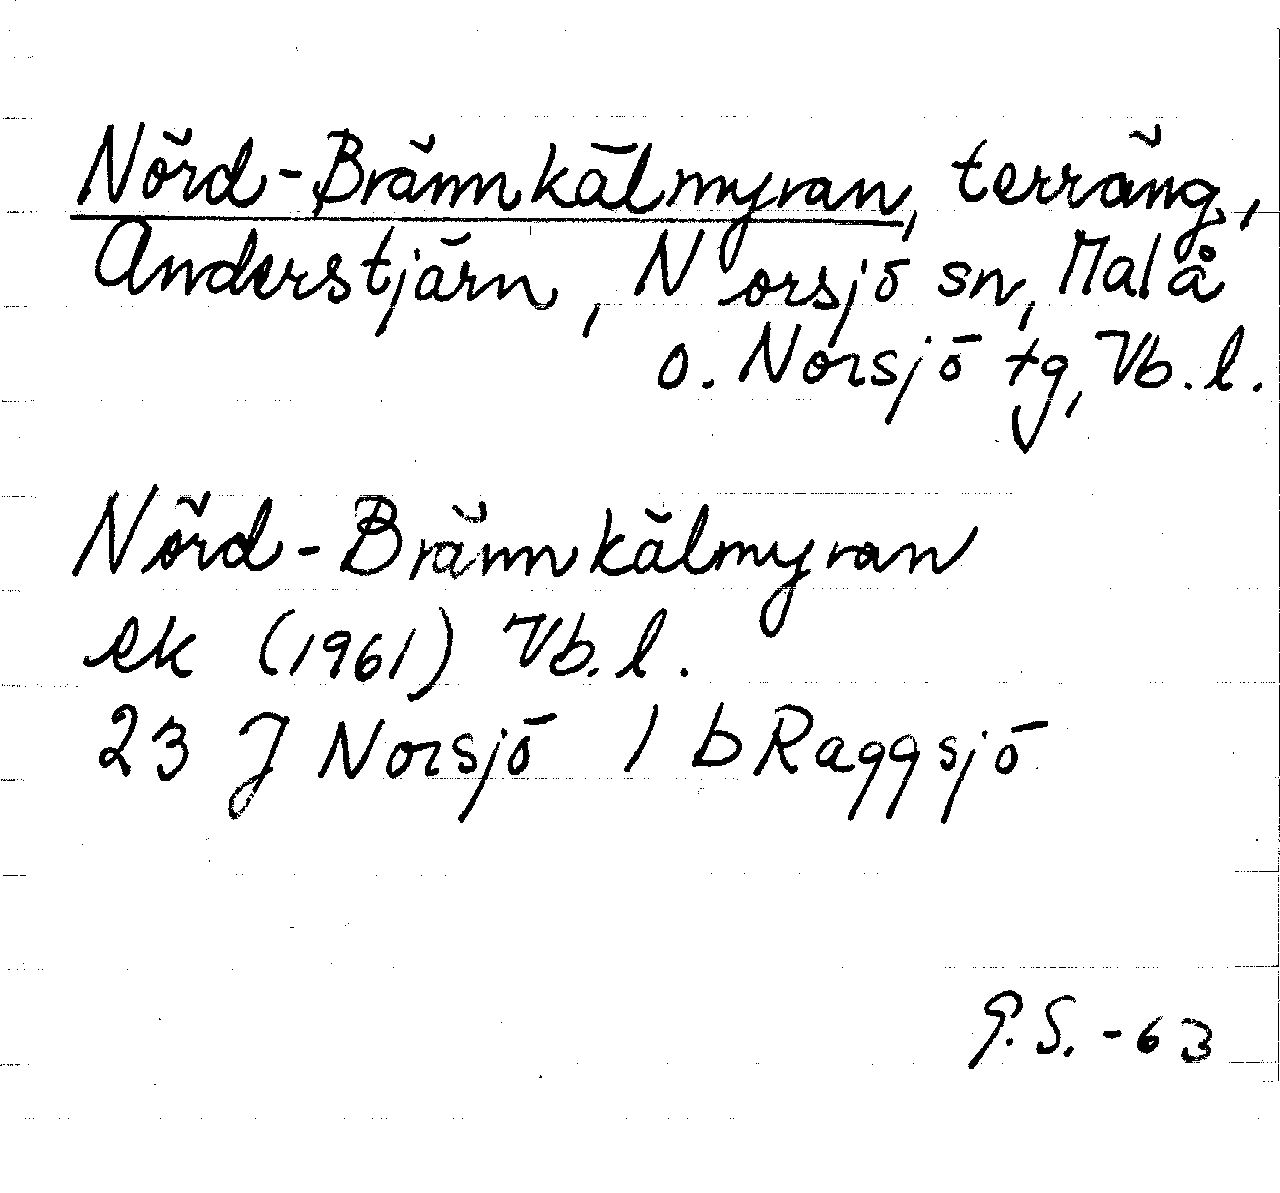 Nörd-Brännkälmyran, terräng,
Anderstjärn, Norsjö sn, Malå
o. Norsjö tg, Vb. l.
Nörd-Brännkälmyran
ek (1961) Vb. l.
23 J Norsjö 1 b Raggsjö
G. S. -63